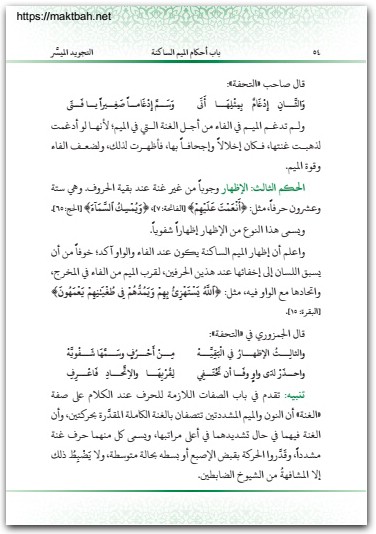 https://maktbah.net
٥٤ باب أحكام الميم الساكنة التجويد الميسَّر
قال صاحب «التحفة»:
وَالثَّـانِ إِدْغَـامٌ بِمِثْلِهَـا أَتَى وَسَـمِّ إِدْغَامـاً صَغِيـراً يـا فَـتَى
ولـم تدغـم الميـم في الفاء من أجـل الغنة التـي في الميم؛ لأنهـا لو أدغمت
لذهبـت غنتها، فـكان إخلالاً وإجحافـاً بها، فأظهـرت لذلك، ولضعـف الفاء
وقوة الميم.
الحكم الثالث: الإظهار وجوباً من غير غنة عند بقية الحروف وهي ستة
وعشرون حرفاً، مثل: ﴿أَنْعَمْتَ عَلَيْهِمْ﴾ [الفاتحة: ٧]، ﴿وَيُمْسِكُ السَّمَاءَ﴾ [الحج: ٦٥].
ويسمى هذا النوع من الإظهار إظهاراً شفوياً.
واعلم أن إظهار الميم الساكنة يكون عند الفاء والواو آكد؛ خوفاً من أن
يسبق اللسان إلى إخفائها عند هذين الحرفين، لقرب الميم من الفاء في المخرج،
واتحادها مع الواو فيه، مثل: ﴿اللَّهُ يَسْتَهْزِئُ بِهِمْ وَيَمُدُّهُمْ فِي طُغْيَانِهِمْ يَعْمَهُونَ﴾
[البقرة: ١٥].
قال الجمزوري في «التحفة»:
والثالِـثُ الإظهـارُ في الْبَقِيَّـهْ مِـنْ أَحْـرُفٍ وَسَـمِّهَا شَفْوِيَّهْ
واحـذَرْ لدَى واوٍ وفَـا أن تَخْتَـفِي لِقُرْبِهَـا والِاتِّحادِ فَاعْـرِفِ
تنبيه: تقدم في باب الصفات اللازمة للحرف عند الكلام على صفة
«الغنة» أن النون والميم المشددتين تتصفان بالغنة الكاملة المقدَّرة بحركتين، وأن
الغنة فيهما في حال تشديدهما في أعلى مراتبها، ويسمى كل منهما حرف غنة
مشدداً، وقدَّروا الحركة بقبض الإصبع أو بسطه بحالة متوسطة، ولا يَضْبِطُ ذلك
إلا المشافهةُ من الشيوخ الضابطين.